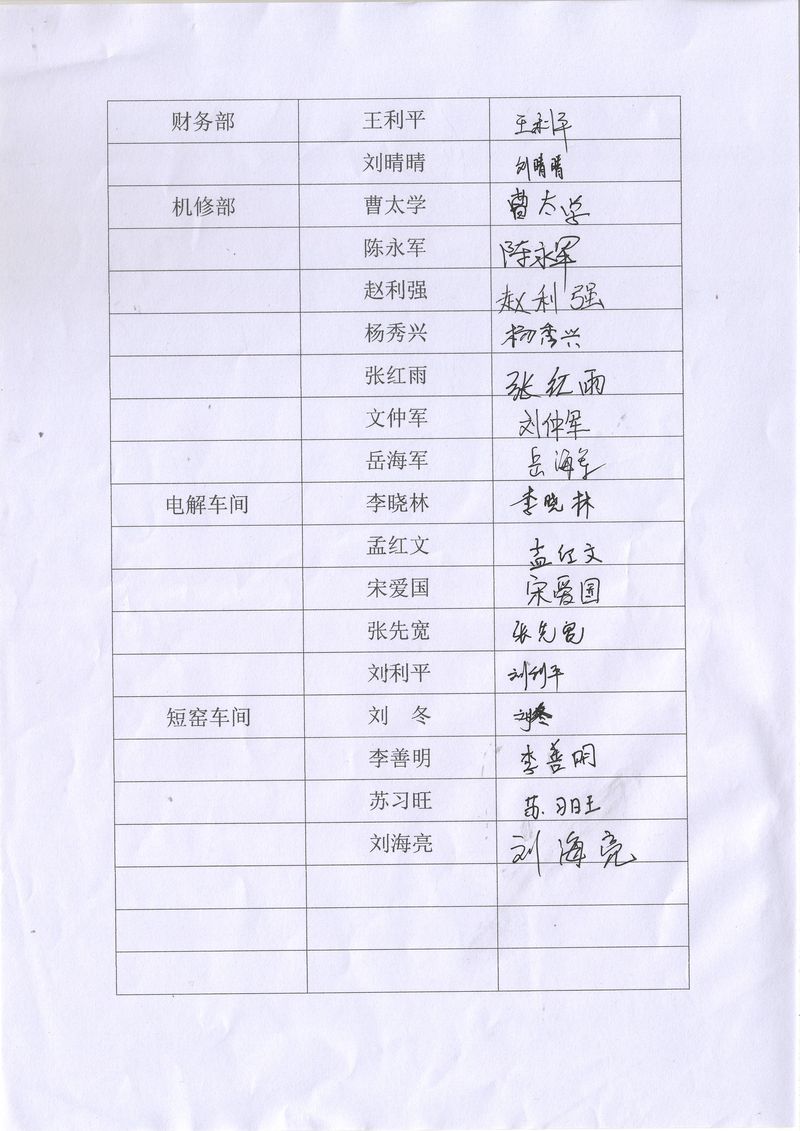 财务部 王利平 王利平
刘晴晴 刘晴晴
机修部 曹太学 曹太学
陈永军 陈永军
赵利强 赵利强
杨秀兴 杨秀兴
张红雨 张红雨
文仲军 刘仲军
岳海军 岳海军
电解车间 李晓林 李晓林
孟红文 孟红文
宋爱国 宋爱国
张先宽 张先宽
刘利平 刘利平
短窑车间 刘 冬 刘冬
李善明 李善明
苏习旺 苏习旺
刘海亮 刘海亮